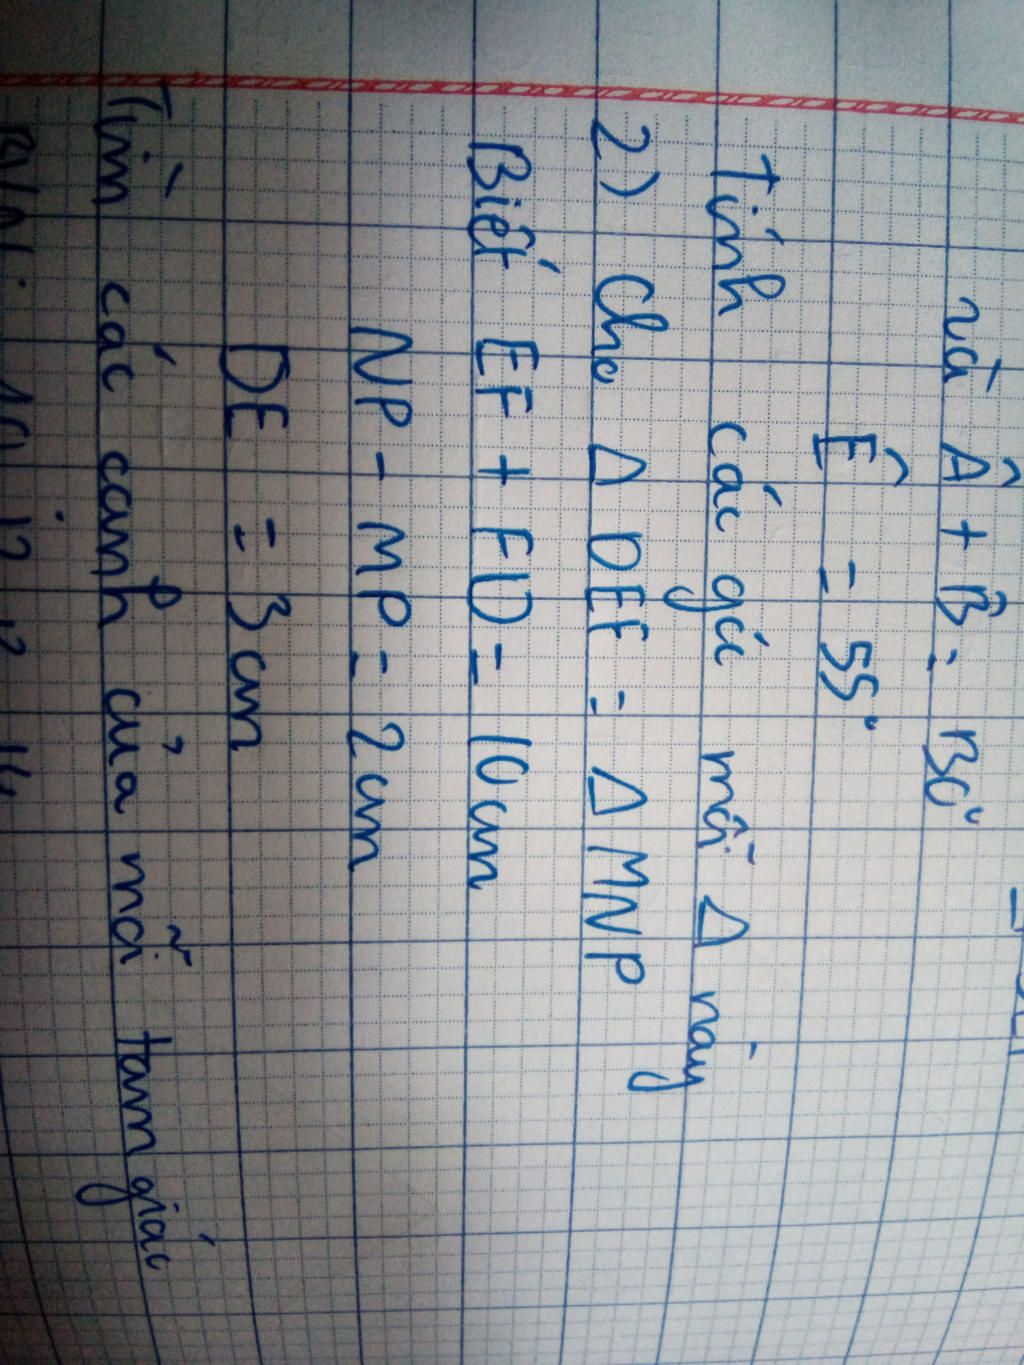 và Â + B̂ = 130°
Ê = 55°
Tính các góc mỗi Δ này
2) Cho Δ DEF = Δ MNP
Biết EF + FD = 10cm
NP - MP = 2cm
DE = 3cm
Tìm các cạnh của mỗi tam giác